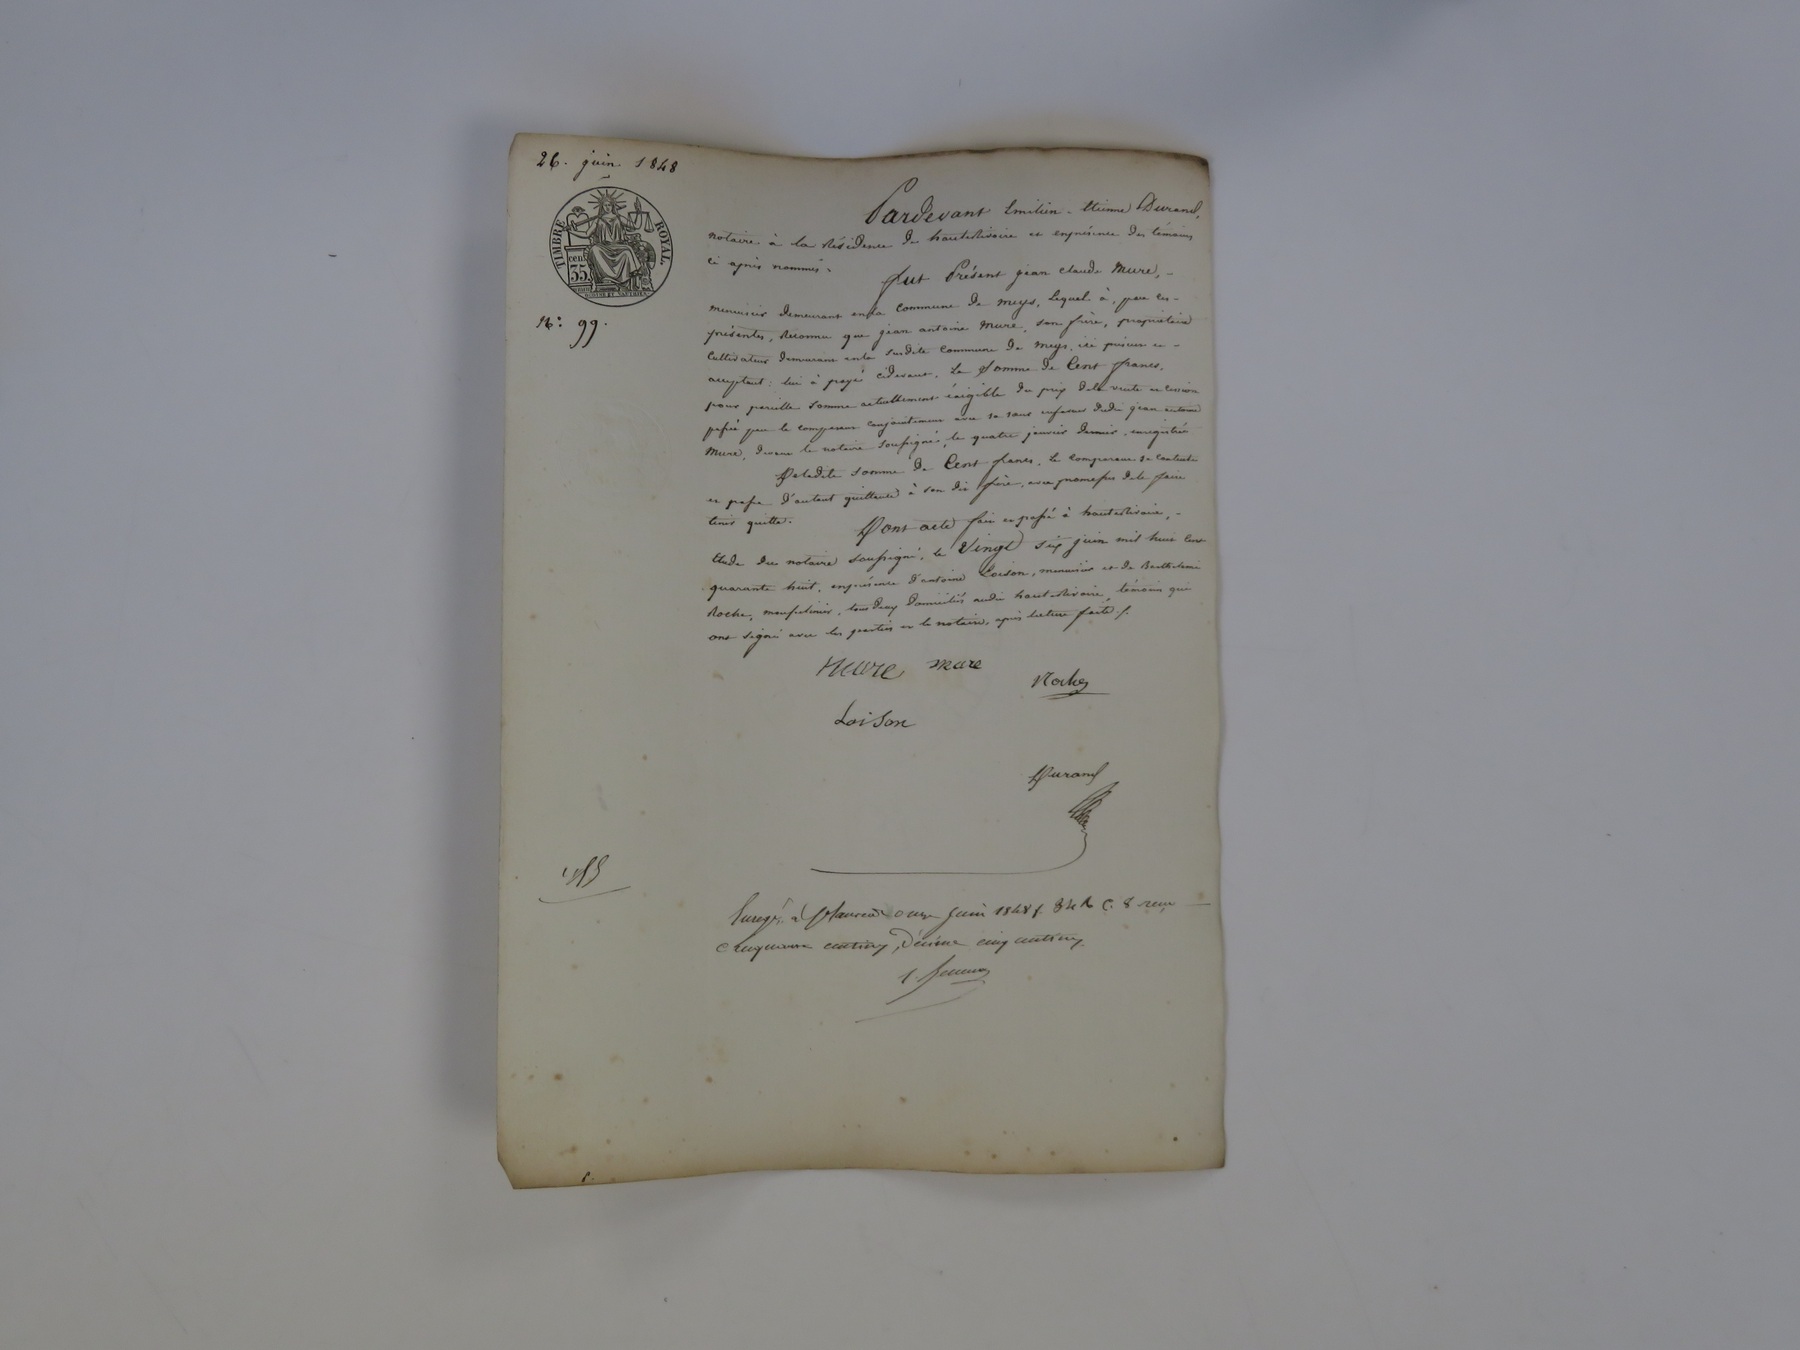 26. juin 1848
TIMBRE ROYAL
cent 35
N°: 99.
Pardevant Emilien-Etienne Durand,
notaire à la Résidence de haute Rivoire et enprésence des témoins
ci après nommés.
fut Présent jean claude Mure,-
menuisier demeurant enla Commune de meys, lequel à, par ces-
présentes, Reconnu que jean antoine Mure, son frère, propriétaire
Cultivateur demeurant enla susdite Commune de Meys, ici présent et-
acceptant: lui à payé cidevant, La Somme de Cent francs,
pour pareille somme actuellement éxigible du prix dela vente et cession
passée par le comparant conjointement avec sa sœur enfaveur dudit jean antoine
Mure, devant le notaire soussigné, le quatre janvier dernier, enregistrée
Deladite somme de Cent francs, Le comparant se contente
et passe d'autant quittance à son dit frère, avec promesse dele faire
tenir quitte.
Dont acte fait et passé à haute Rivoire,-
Etude du notaire soussigné, le Vingt six juin mil huit Cent
quarante huit, enprésence d'antoine Loison, menuisier et de Barthelemi
Roche, tous deux domiciliés audit haute Rivoire, témoins qui
ont signé avec les parties et le notaire, après lecture faite ./.
Mure mure
Roche
Loison
Durand
Enregé. à St Laurent onze juin 1848 f. 34 R C. 8 reçu
Cinquante centimes, Décime cinq centimes